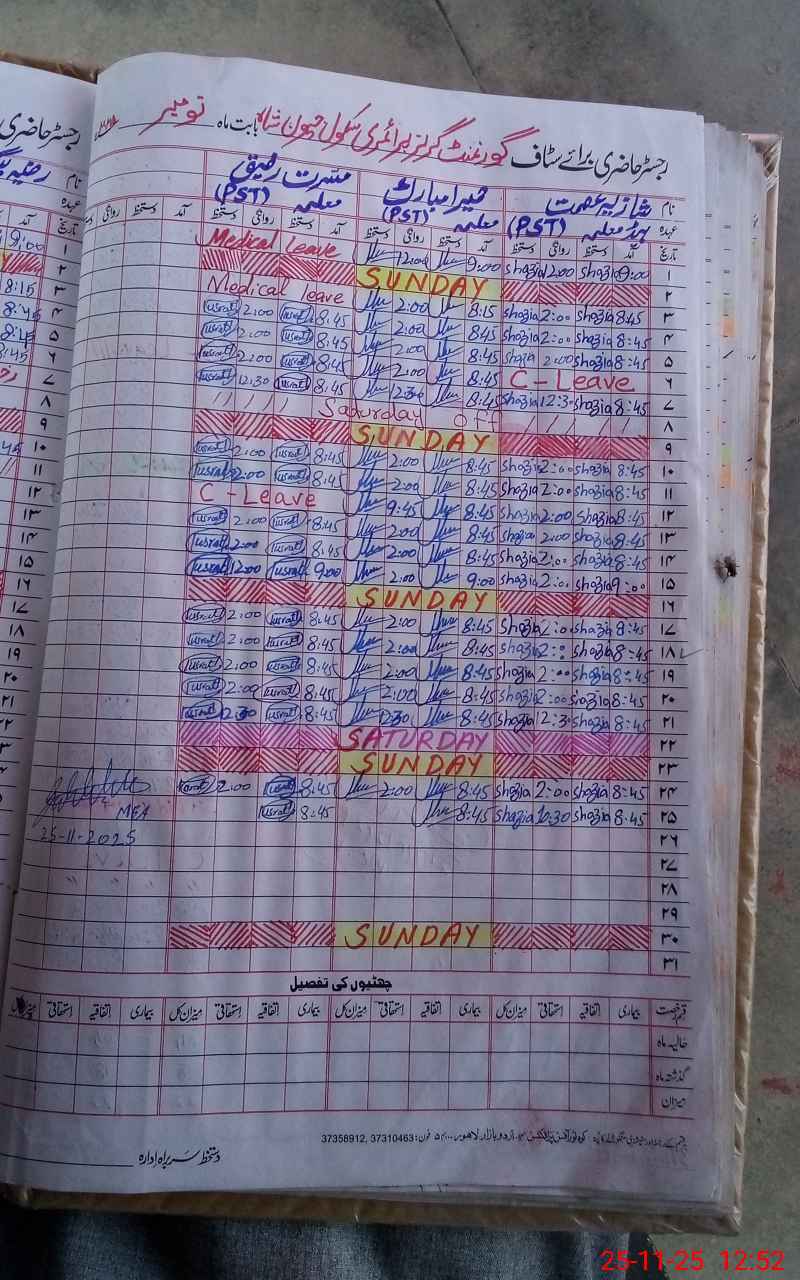 رجسٹر حاضری برائے سٹاف گورنمنٹ گرلز پرائمری سکول جیون شاہ بابت ماہ نومبر
نام شازیہ عصمت حمیرا مبارک مسرت رفیق
عہدہ ہیڈ معلمہ (PST) معلمہ (PST) معلمہ (PST)
تاریخ آمد دستخط روانگی دستخط آمد دستخط روانگی دستخط آمد دستخط روانگی دستخط آمد دستخط روانگی دستخط
۱ 9:00 shazia 12:00 shazia 9:00 12:00 Medical leave
۲ SUNDAY
۳ 8:45 shazia 2:00 shazia 8:15 2:00 Medical leave
۴ 8:45 shazia 2:00 shazia 8:45 2:00 8:45 Musrat 2:00 Musrat
۵ 8:45 shazia 2:00 shazia 8:45 2:00 8:45 Musrat 2:00 Musrat
۶ C-Leave 8:45 2:00 8:45 Musrat 2:00 Musrat
۷ 8:45 shazia 12:3 shazia 8:45 12:30 8:45 Musrat 12:30 Musrat
۸ Saturday off
۹ SUNDAY
۱۰ 8:45 shazia 2:00 shazia 8:45 2:00 8:45 Musrat 2:00 Musrat
۱۱ 8:45 shazia 2:00 shazia 8:45 2:00 8:45 Musrat 2:00 Musrat
۱۲ 8:45 shazia 2:00 shazia 8:45 9:45 C-Leave
۱۳ 8:45 shazia 2:00 shazia 8:45 2:00 8:45 Musrat 2:00 Musrat
۱۴ 8:45 shazia 2:00 shazia 8:45 2:00 8:45 Musrat 2:00 Musrat
۱۵ 9:00 shazia 2:00 shazia 9:00 2:00 9:00 Musrat 12:00 Musrat
۱۶ SUNDAY
۱۷ 8:45 shazia 2:0 shazia 8:45 2:00 8:45 Musrat 2:00 Musrat
۱۸ 8:45 shazia 2:0 shazia 8:45 2:00 8:45 Musrat 2:00 Musrat
۱۹ 8:45 shazia 2:00 shazia 8:45 2:00 8:45 Musrat 2:00 Musrat
۲۰ 8:45 shazia 2:00 shazia 8:45 2:00 8:45 Musrat 2:00 Musrat
۲۱ 8:45 shazia 12:30 shazia 8:45 12:30 8:45 Musrat 12:30 Musrat
۲۲ SATURDAY
۲۳ SUNDAY
۲۴ 8:45 shazia 2:00 shazia 8:45 2:00 8:45 Musrat 2:00 Musrat
۲۵ 8:45 shazia 10:30 shazia 8:45 8:45 Musrat MEA
۲۶ 25-11-2025
۲۷
۲۸
۲۹
۳۰ SUNDAY
۳۱
چھٹیوں کی تفصیل
قسم رخصت بیماری اتفاقیہ استحقاقی میزان کل بیماری اتفاقیہ استحقاقی میزان کل بیماری اتفاقیہ استحقاقی میزان کل بیماری اتفاقیہ استحقاقی
حالیہ ماہ
گذشتہ ماہ
میزان
اردو بازار لاہور فون: 37310463, 37358912
دستخط سربراہ ادارہ
25-11-25 12:52